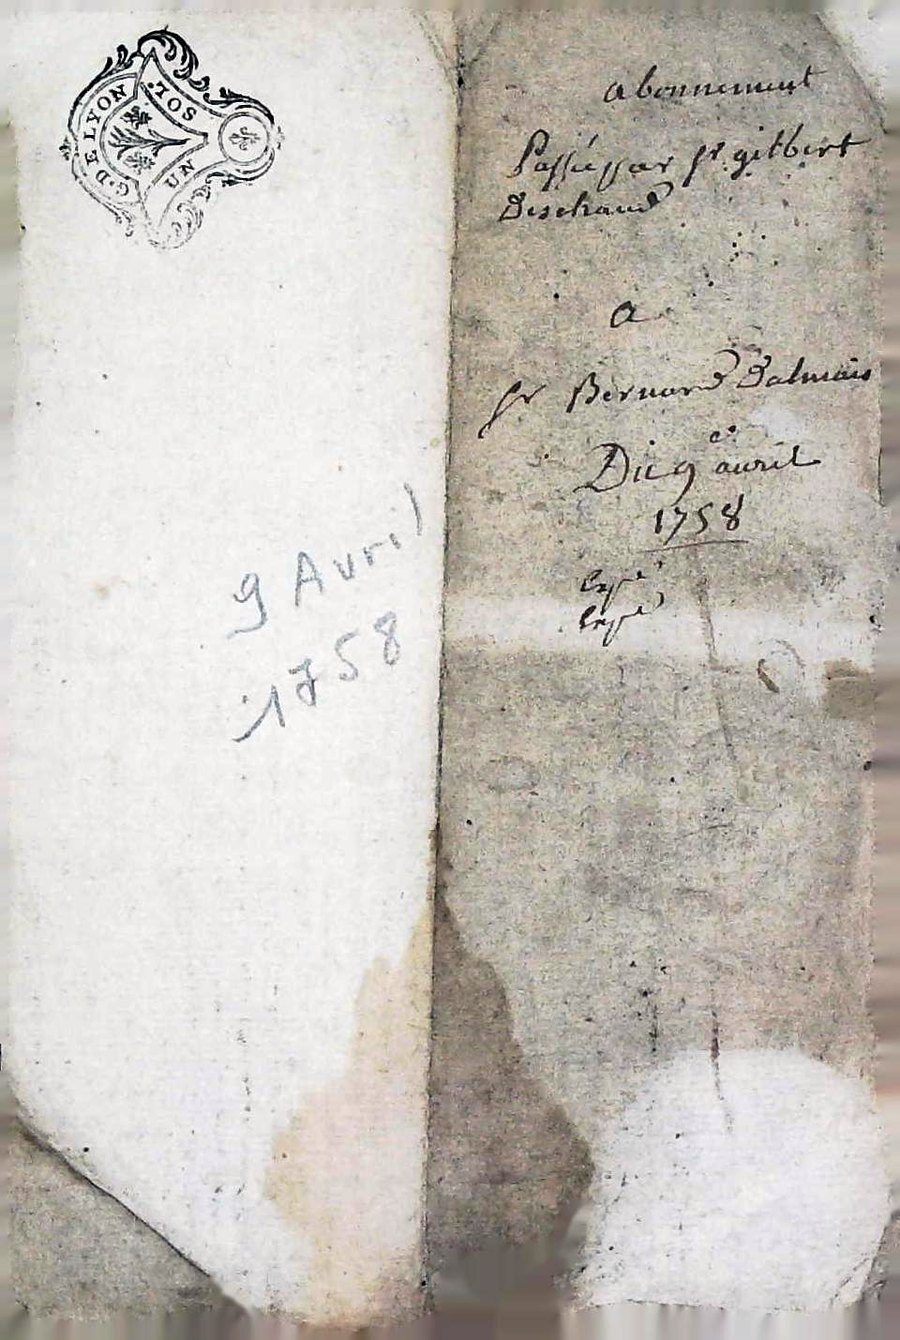 G. DE LYON
UN SOL.
9 Avril
1758
abonnement
Passé par sr gilbert
Deschaud
a
sr Bernard Dalmais
Du 9 avril
1758